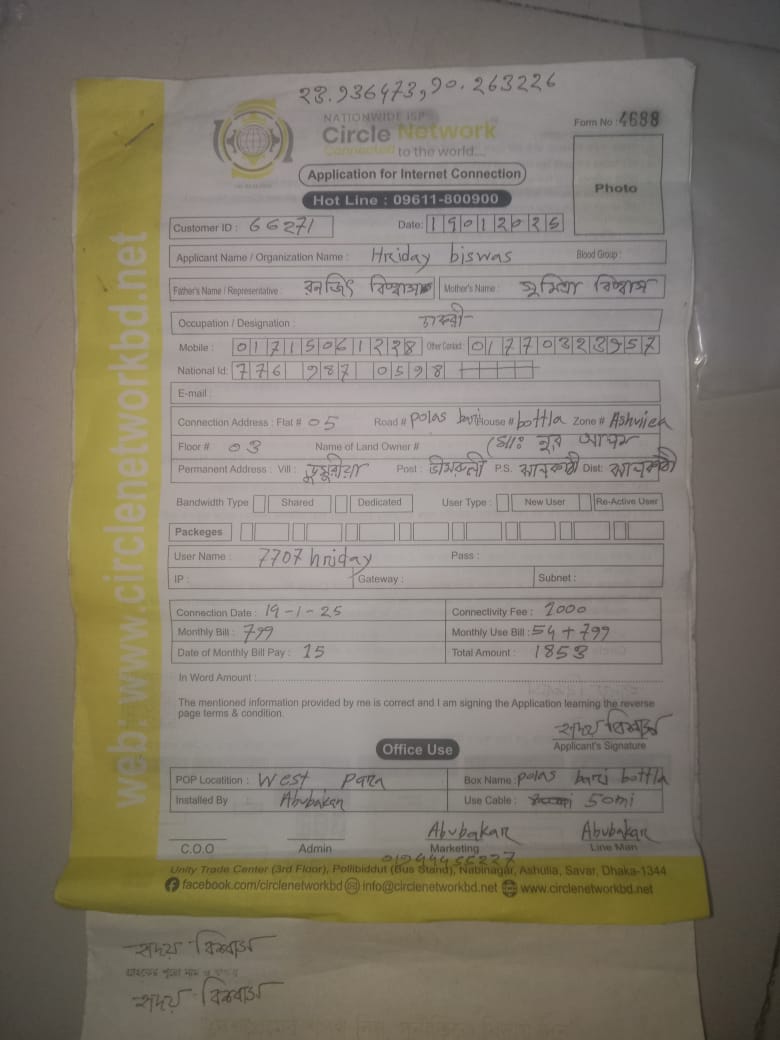 23.936473,90.263226
NATIONWIDE ISP
Circle Network
Connected to the world....
Form No : 4688
Application for Internet Connection
Photo
Hot Line : 09611-800900
Customer ID : 66271 Date: 19012025
Applicant Name / Organization Name : Hriday biswas Blood Group :
Father's Name / Representative : রনজিৎ বিশ্বাস Mother's Name : সুমিত্রা বিশ্বাস
Occupation / Designation : চাকরী
Mobile : 01715061228 Other Contact : 01770323957
National Id: 776 987 0598
E-mail :
Connection Address : Flat # 05 Road # polas bari House # bottla Zone # Ashuliea
Floor # 03 Name of Land Owner # মোঃ নুর আলম
Permanent Address : Vill : ডুমুরীয়া Post : P.S. ঝালকাঠী Dist: ঝালকাঠী
Bandwidth Type Shared Dedicated User Type : New User Re-Active User
Packeges
User Name : 7707 hriday Pass :
IP : Gateway : Subnet :
Connection Date : 19-1-25 Connectivity Fee : 1000
Monthly Bill : 799 Monthly Use Bill : 54 + 799
Date of Monthly Bill Pay : 15 Total Amount : 1853
In Word Amount :
The mentioned information provided by me is correct and I am signing the Application learning the reverse
page terms & condition.
হৃদয় বিশ্বাস
Applicant's Signature
Office Use
POP Locatition : West Para Box Name : polas bari bottla
Installed By : Abubakar Use Cable : 50mi
Abubakar Abubakar
C.O.O Admin Marketing Line Man
Unity Trade Center (3rd Floor), Pollibiddut (Bus Stand), Nabinagar, Ashulia, Savar, Dhaka-1344
facebook.com/circlenetworkbd info@circlenetworkbd.net www.circlenetworkbd.net
web: www.circlenetworkbd.net
হৃদয় বিশ্বাস
হৃদয় বিশ্বাস